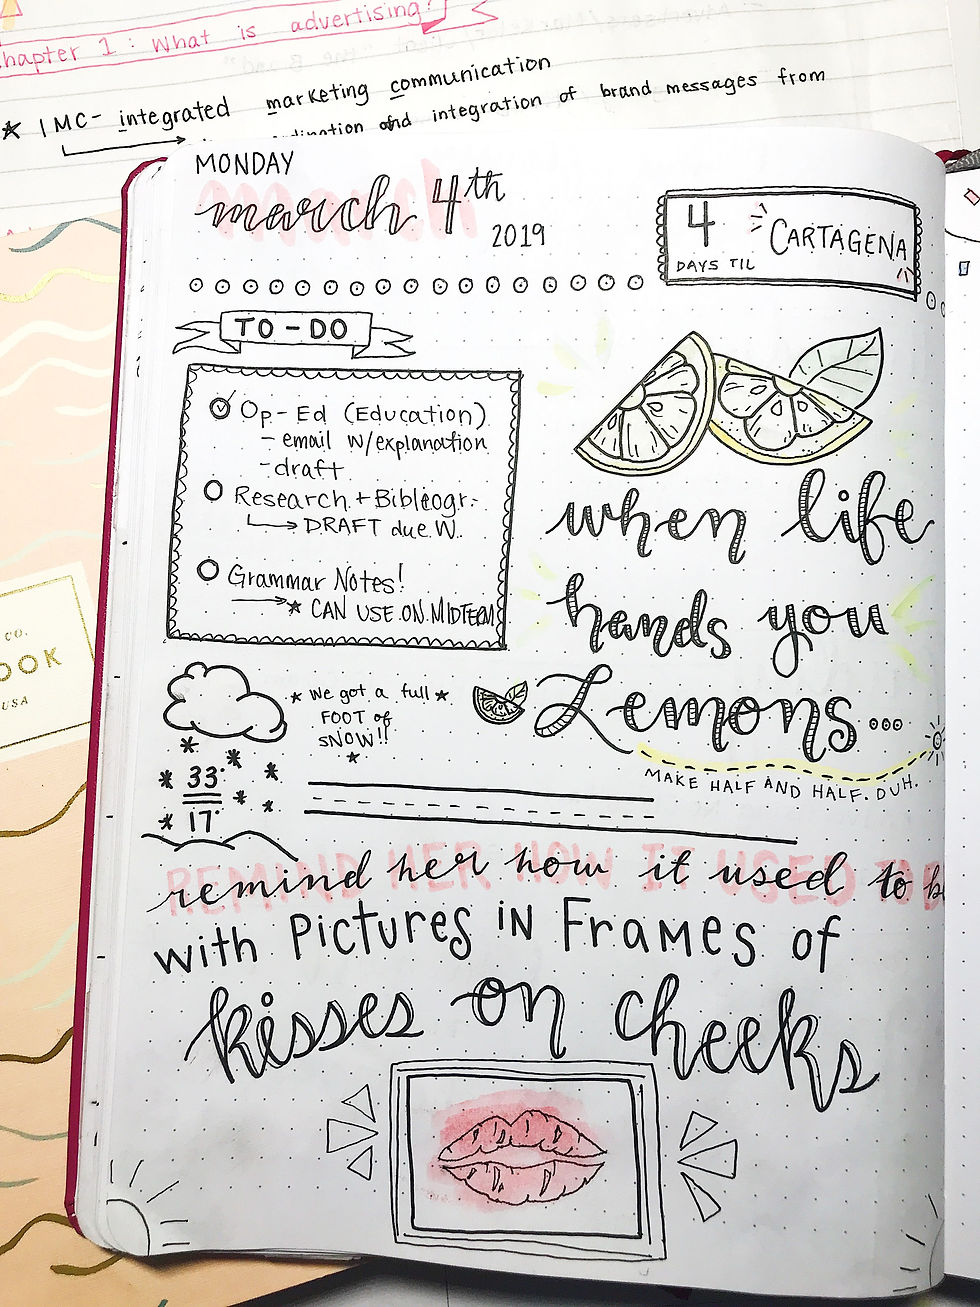 Chapter 1: What is advertising?
★ IMC- integrated marketing communication
and integration of brand messages from
MONDAY
march 4th
2019
4
DAYS TIL
CARTAGENA
TO-DO
Op-Ed (Education)
- email w/explanation
- draft
Research + Bibliogr.
DRAFT due W.
Grammar Notes!
★ CAN USE ON MIDTERM
when life
hands you
Lemons...
MAKE HALF AND HALF. DUH.
★ We got a full ★
FOOT of
SNOW!!
★
33°
17°
remind her how it used to
with Pictures in Frames of
kisses on cheeks
CO.
OOK
USA